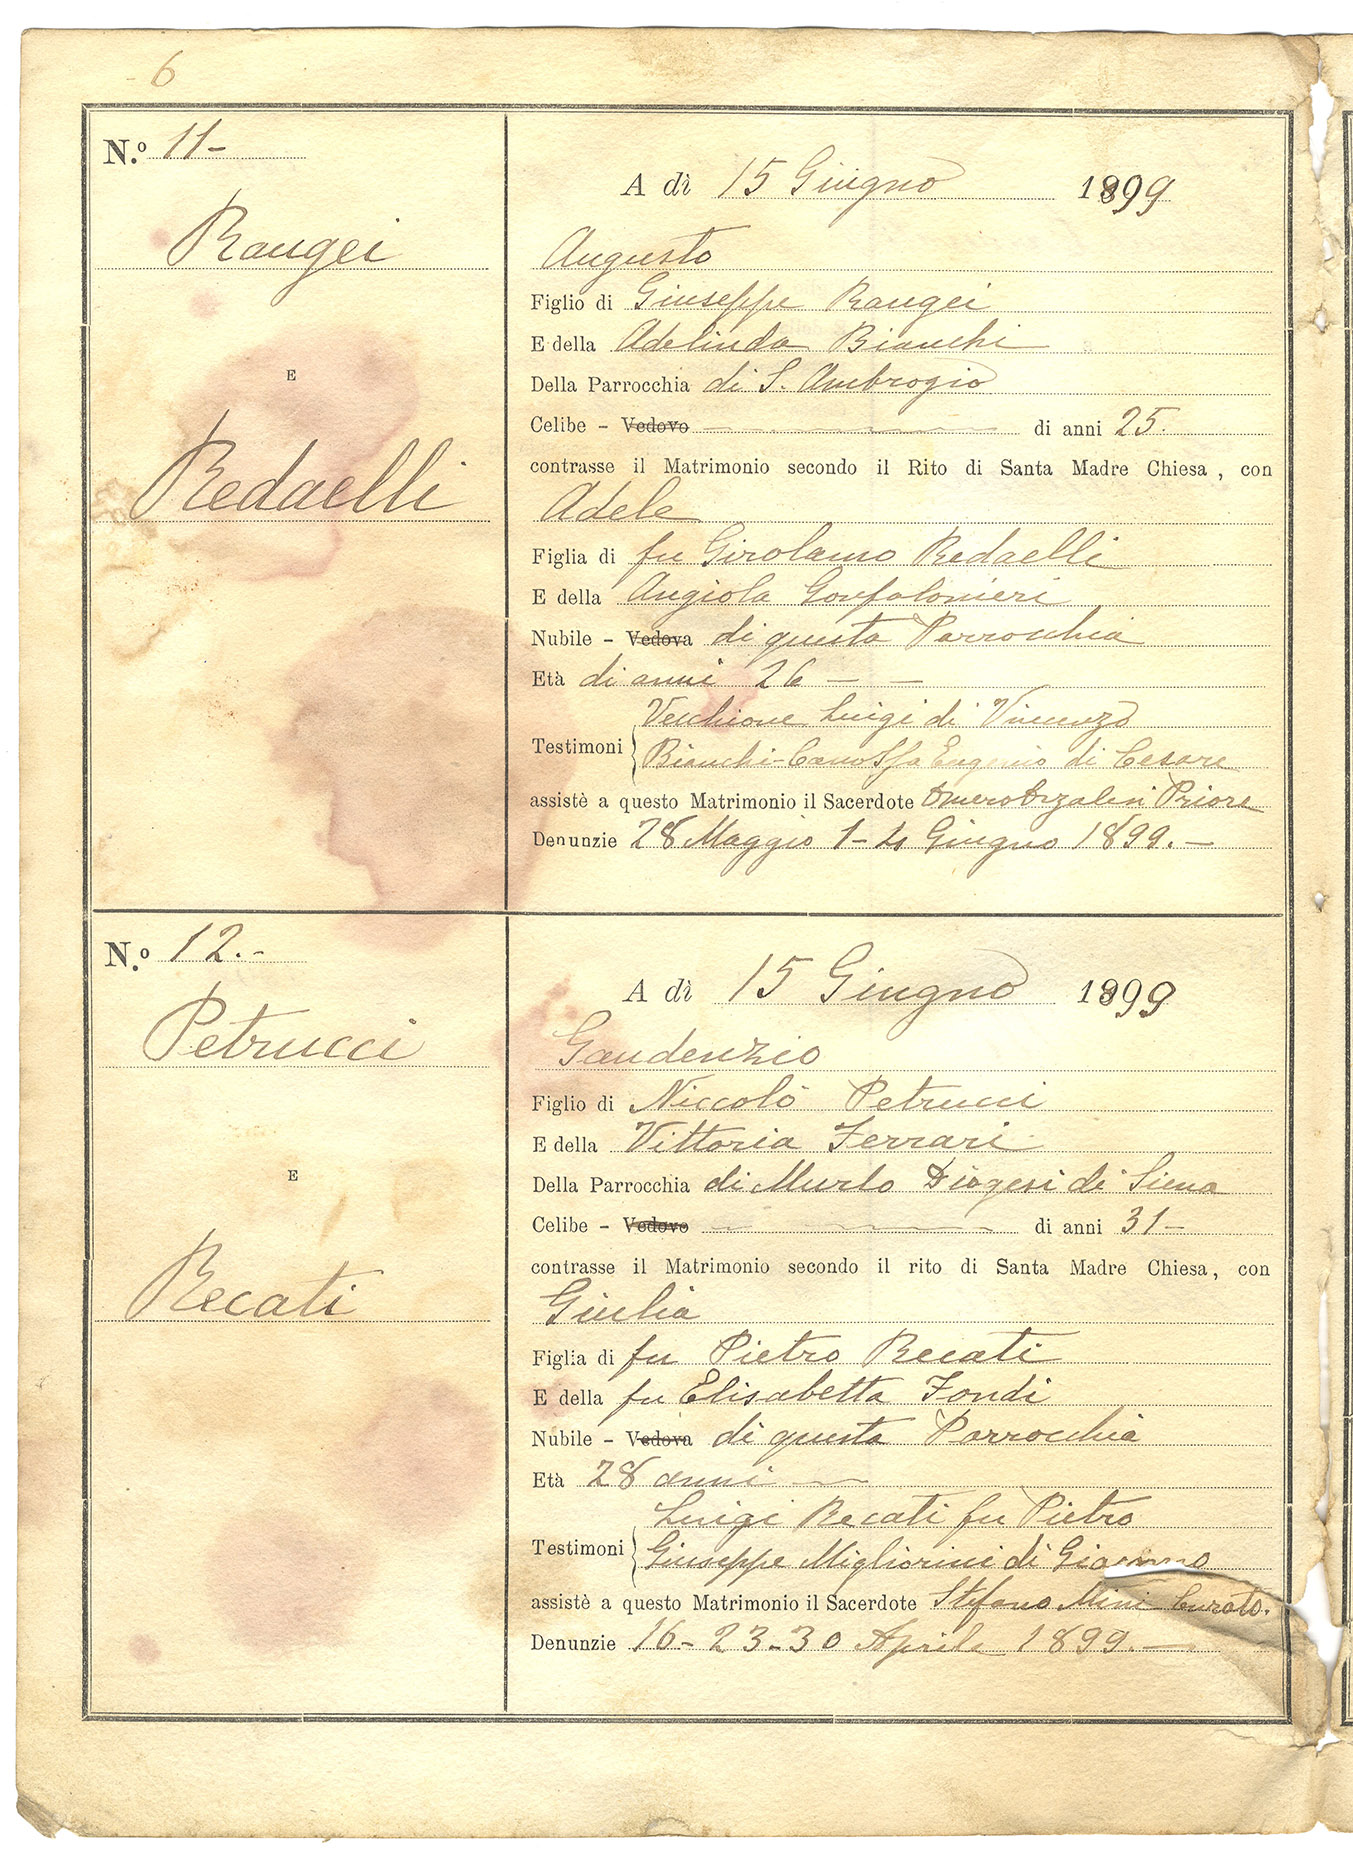 6
N.º 11-
Raugei
E
Redaelli
A dì 15 Giugno 1899
Augusto
Figlio di Giuseppe Raugei
E della Adelinda Bianchi
Della Parrocchia di S. Ambrogio
Celibe - Vedovo di anni 25.
contrasse il Matrimonio secondo il Rito di Santa Madre Chiesa, con
Adele
Figlia di fu Girolamo Redaelli
E della Angiola Gonfalonieri
Nubile - Vedova di questa Parrocchia
Età di anni 26 - -
Vecchione Luigi di Vincenzo
Testimoni
Bianchi-Canossa Eugenio di Cesare
assistè a questo Matrimonio il Sacerdote Priore
Denunzie 28 Maggio 1-4 Giugno 1899.-
N.º 12.-
Petrucci
E
Recati
A dì 15 Giugno 1899
Gaudenzio
Figlio di Niccolò Petrucci
E della Vittoria Ferrari
Della Parrocchia di Murlo di Siena
Celibe - Vedovo di anni 31-
contrasse il Matrimonio secondo il rito di Santa Madre Chiesa, con
Giulia
Figlia di fu Pietro Recati
E della fu Elisabetta Fondi
Nubile - Vedova di questa Parrocchia
Età 28 anni
Luigi Recati fu Pietro
Testimoni
Giuseppe Migliorini di
assistè a questo Matrimonio il Sacerdote Stefano Mini Curato.
Denunzie 16-23-30 Aprile 1899.-